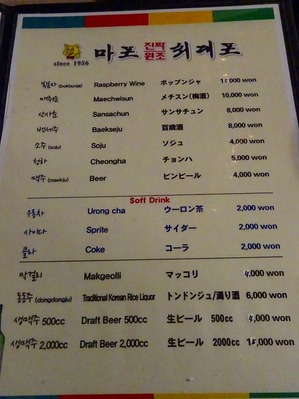 since 1956
마포 진짜 원조 최대포
복분자 (Bokbunja) Raspberry Wine ポップンジャ won
매취순 Maechwisun メチスン(梅酒) 10,000 won
산사춘 Sansachun サンサチュン 8,000 won
백세주 Baekseju 百歳酒 8,000 won
소주 (soju) Soju ソジュ 4,000 won
청하 Cheongha チョンハ 5,000 won
맥주 (maekju) Beer ビンビール 4,000 won
Soft Drink
우롱차 Urong cha ウーロン茶 2,000 won
사이다 Sprite サイダー 2,000 won
콜라 Coke コーラ 2,000 won
막걸리 Makgeolli マッコリ 4,000 won
동동주 (dongdongju) Traditional Korean Rice Liquor トンドンジュ/濁り酒 6,000 won
생맥주 500cc Draft Beer 500cc 生ビール 500cc ,000 won
생맥주 2,000cc Draft Beer 2,000cc 生ビール 2000cc won